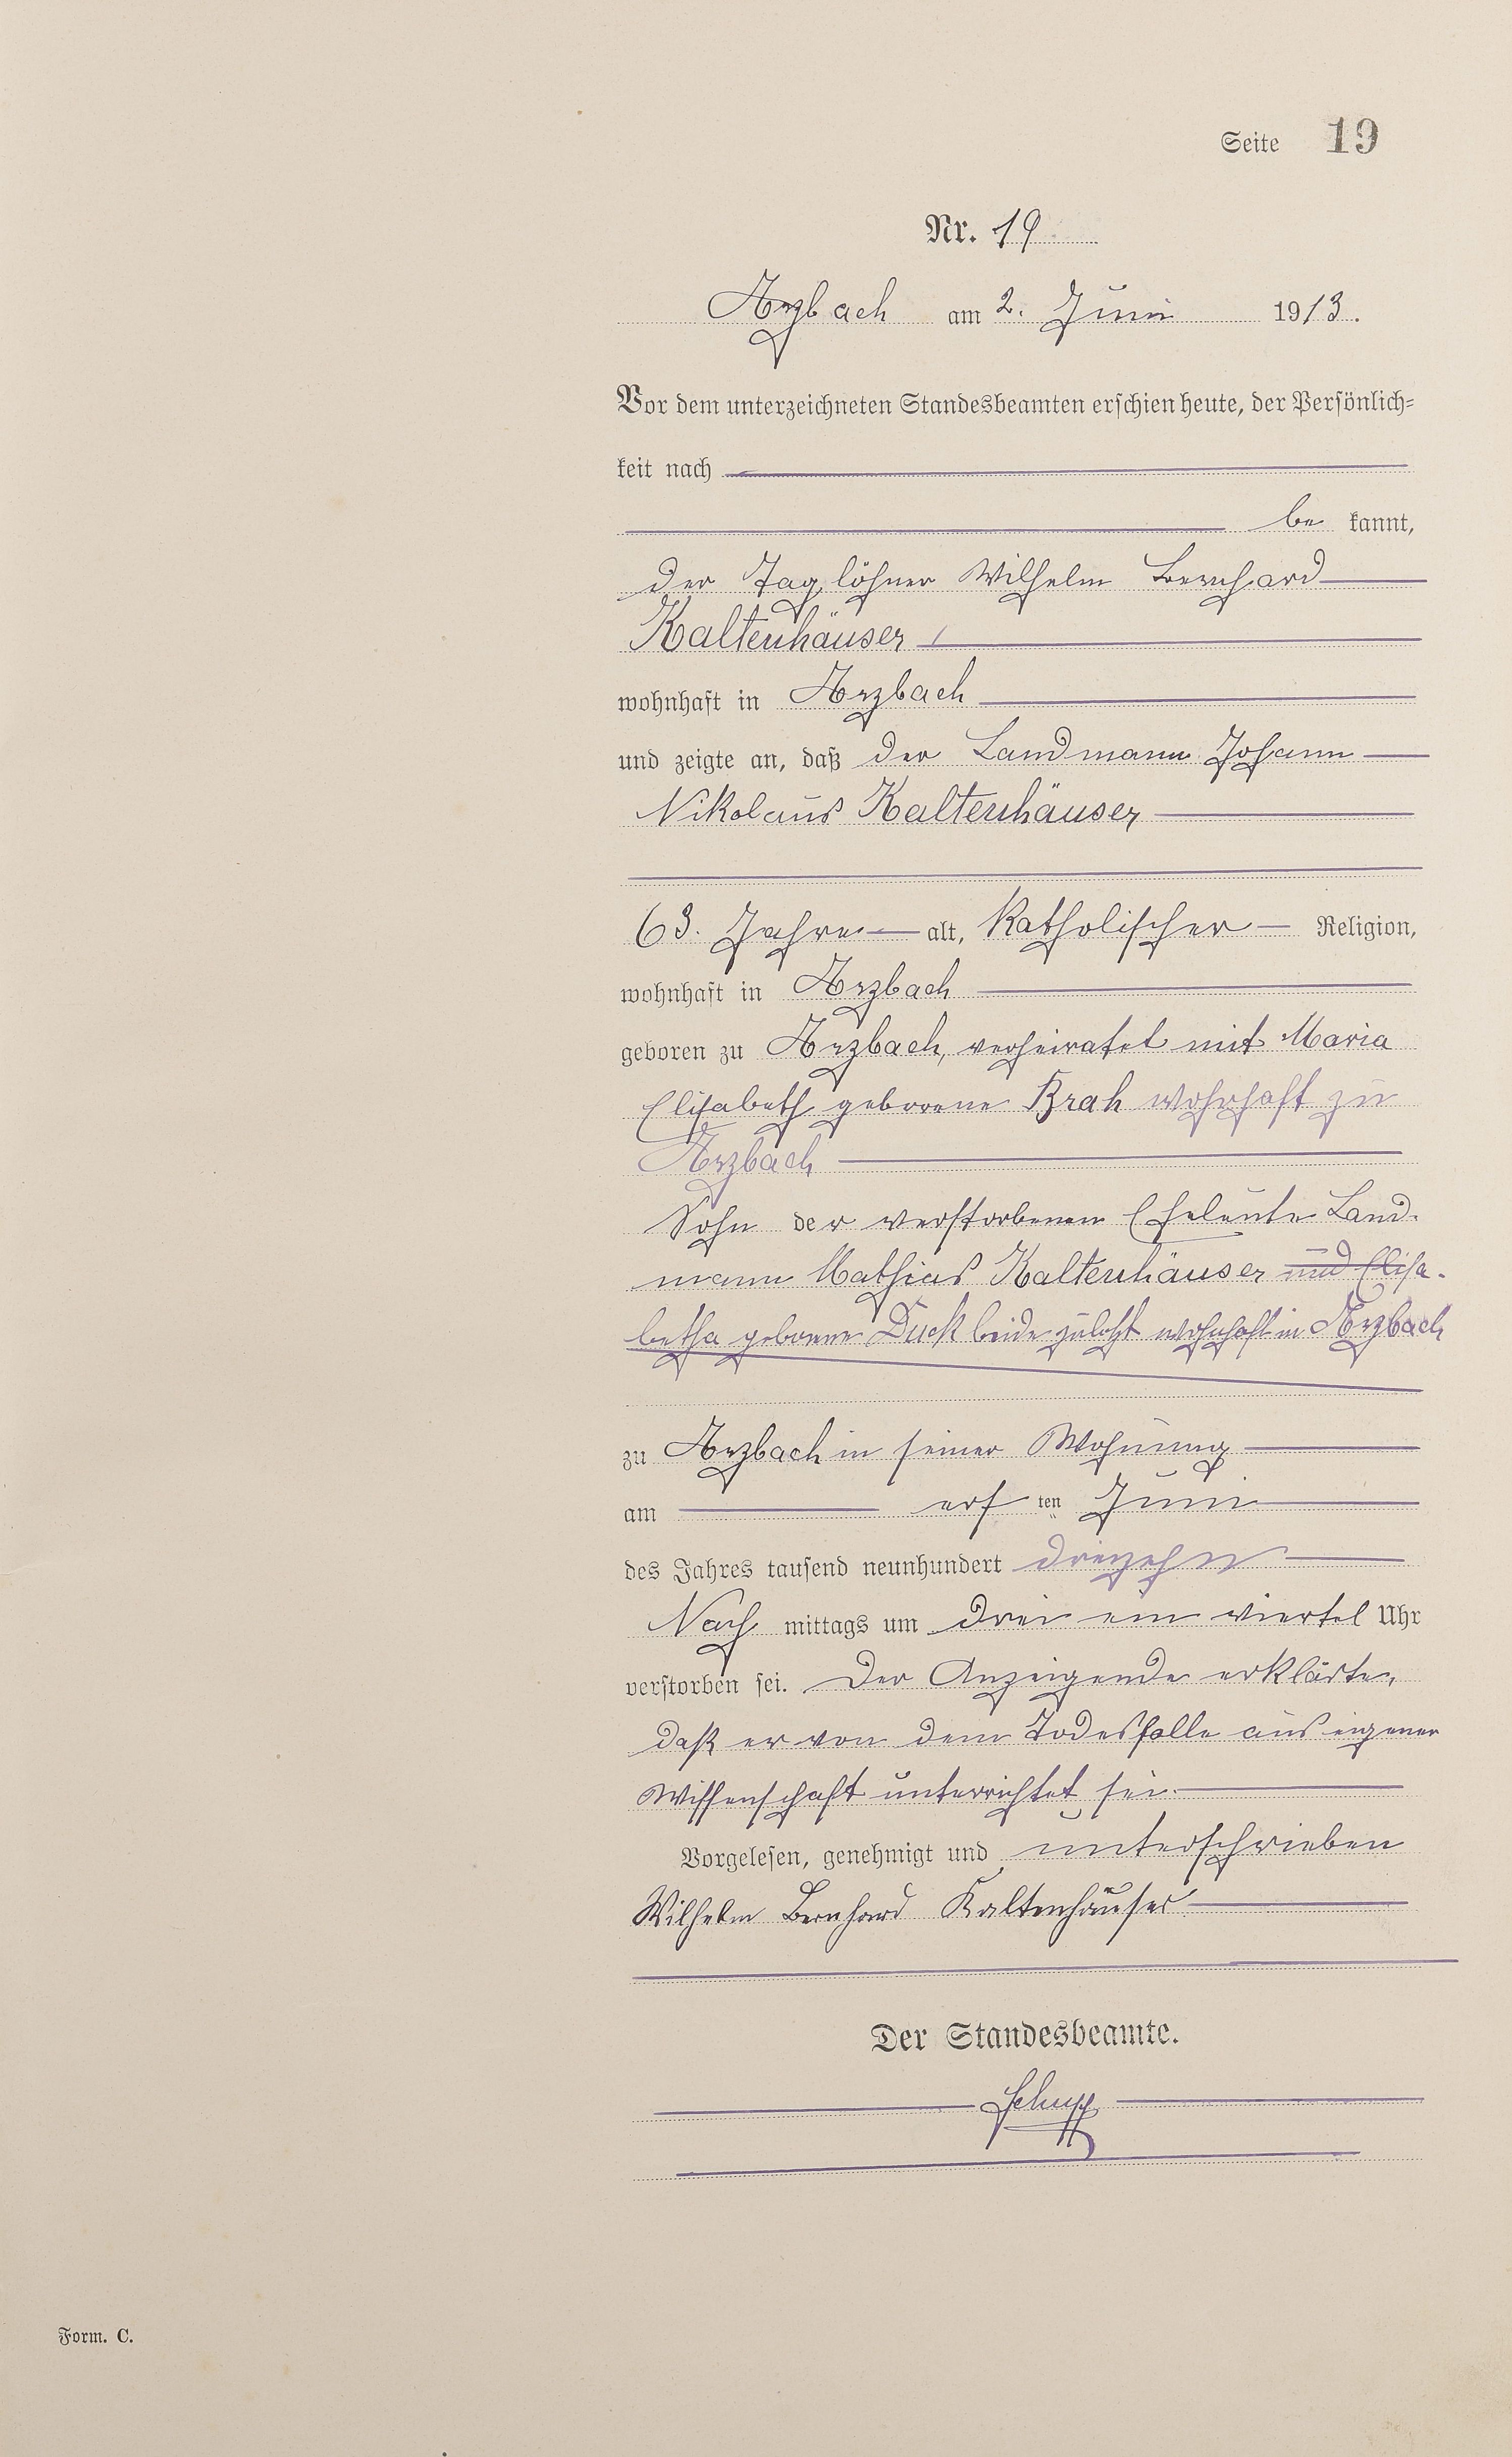 Seite 19
Nr. 19
Arzbach am 2. Juni 1913.
Vor dem unterzeichneten Standesbeamten erschien heute, der Persönlich=
keit nach
be kannt,
der Taglöhner Wilhelm Bernhard
Kaltenhäuser,
wohnhaft in Arzbach
und zeigte an, daß der Landmann Johann
Nikolaus Kaltenhäuser
63. Jahre alt, Katholischer Religion,
wohnhaft in Arzbach
geboren zu Arzbach, verheiratet mit Maria
Elisabeth geborene Brah wohnhaft zu
Arzbach
Sohn der verstorbenen Eheleute Land-
mann Mathias Kaltenhäuser und Elisa-
betha geborene Duck beide zuletzt wohnhaft in Arzbach
zu Arzbach in seiner Wohnung
am ersten Juni
des Jahres tausend neunhundert dreizehn
Nach mittags um drei ein viertel Uhr
verstorben sei. Der Anzeigende erklärte,
daß er von dem Todesfalle aus eigener
Wissenschaft unterrichtet sei.
Vorgelesen, genehmigt und unterschrieben
Wilhelm Bernhard Kaltenhäuser
Der Standesbeamte.
Schupp
Form. C.